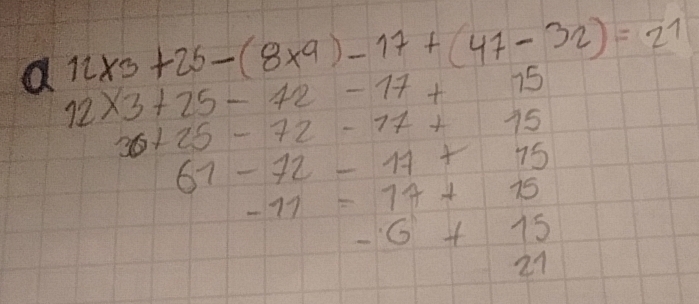 a 12x3+25-(8x9)-17+(47-32)=21
12x3+25-72-17+ 15
36+25-72-17+ 15
61-72-17+ 15
-11=17+ 15
-6+ 15
21